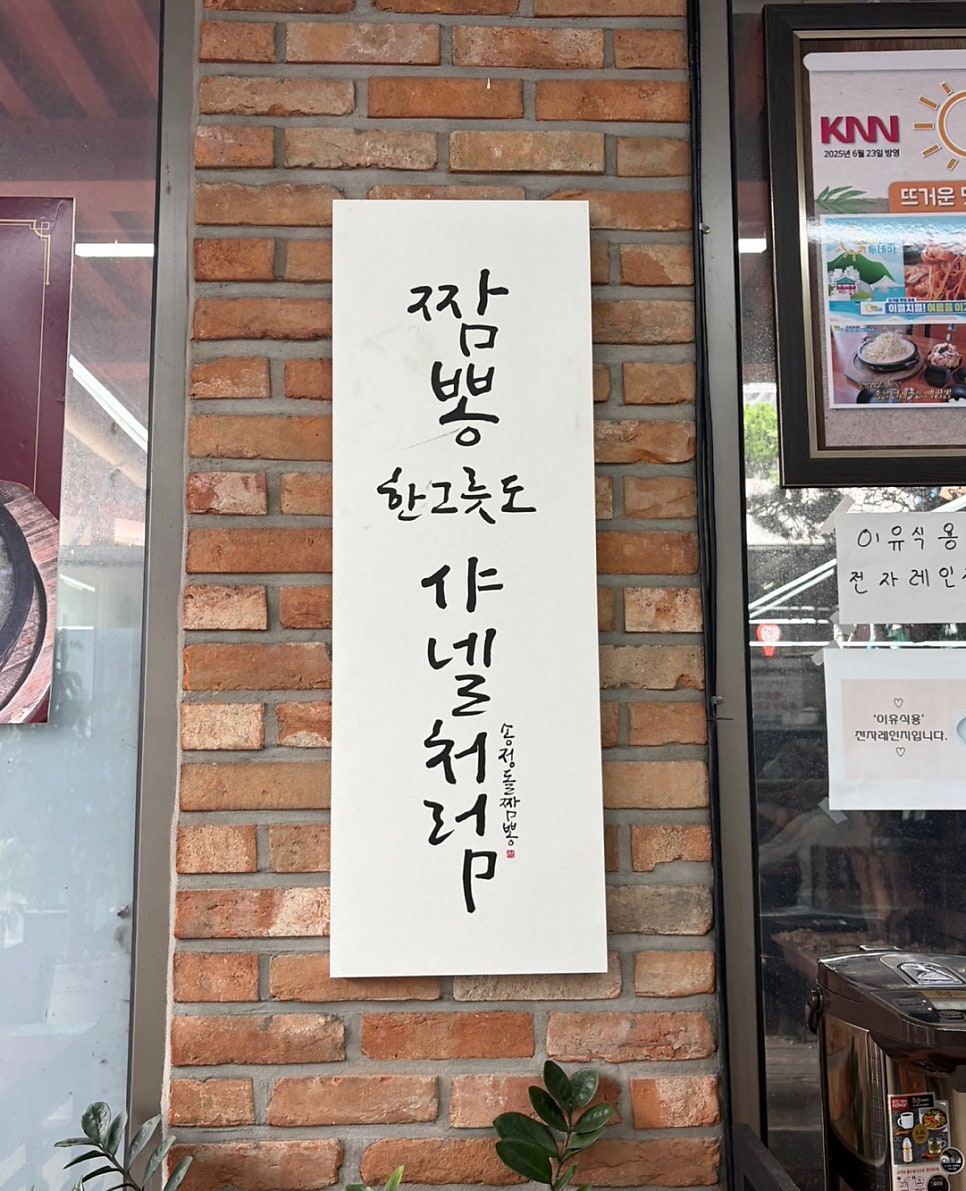 짬
뽕
한그릇도
샤
넬
처
럼
송정돌짬뽕
KNN
2025년 6월 23일 방영
뜨거운
이열치열! 여름을
이유식용
전자레인
♡
'이유식용'
전자레인지입니다.
♡